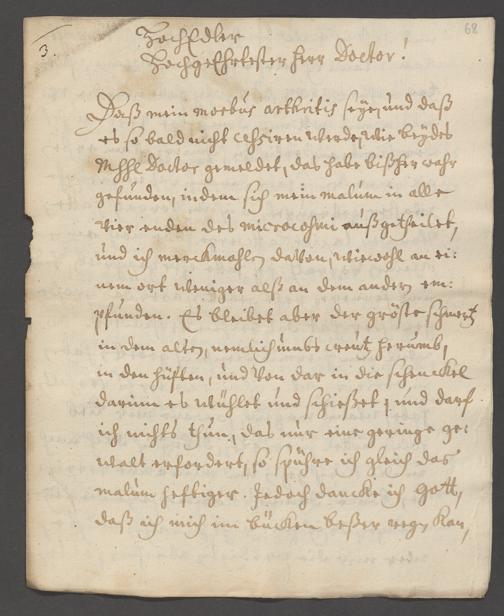 3.
68
HochEdler
HochgeEhrtester Herr Doctor!
Daß mein morbus arthritis seye, und daß
es so bald nicht cessiren werde, wie beydes
Mhhl Doctor gemeldet, das habe bißher wahr
gefunden, indem sich mein malum in alle
vier enden des microcosmi außgetheilet,
und ich merckmahlen davon, wiewohl an ei:
nem ort weniger alß an dem anderen em:
pfunden. Es bleibet aber der gröste schmertz
in dem alten, nemlich umbs creutz herumb,
in den hüften, und von dar in die schenckel
darinn es wühlet und schießet, und darf
ich nichts thun, das nur eine geringe ge:
walt erfordert, so spühre ich gleich das
malum heftiger. Jedoch dancke ich Gott,
daß ich mich im bücken beßer regen kan,